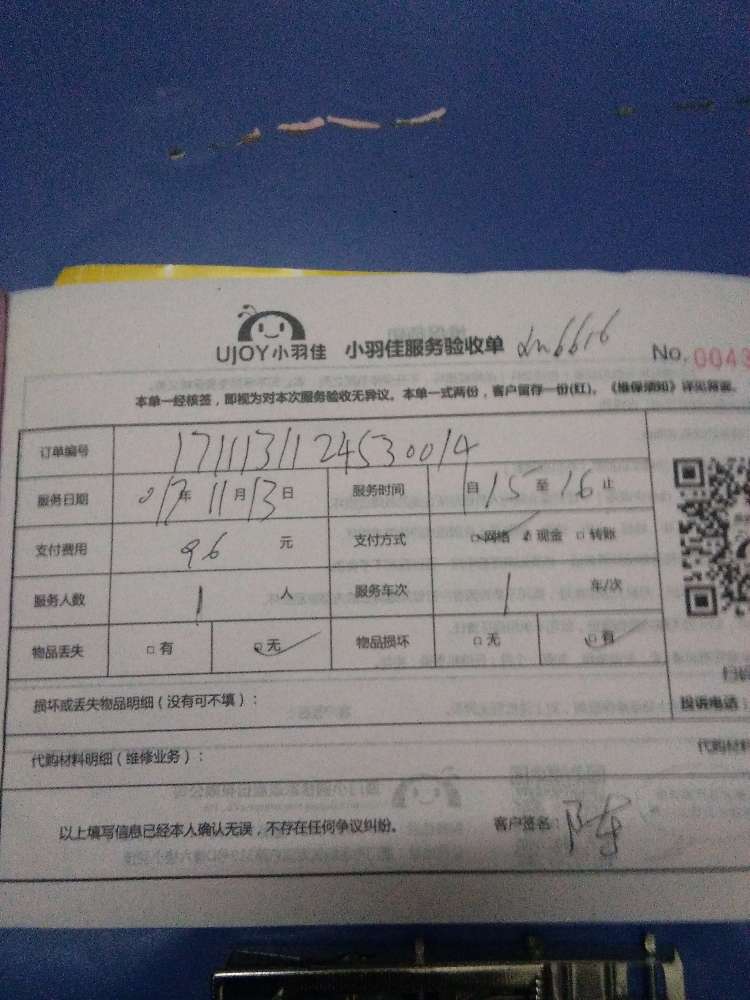 UJOY小羽佳 小羽佳服务验收单 6616 No. 0043
本单一经核签，即视为对本次服务验收无异议。本单一式两份，客户留存一份(红)。《维保须知》详见背面。
订单编号 1711131124530014
服务日期 017年11月13日 服务时间 自15至16止
支付费用 96 元 支付方式 □网络 □现金 □转账
服务人数 1 人 服务车次 1 车/次
物品丢失 □有 □无 物品损坏 □无 □有
损坏或丢失物品明细（没有可不填）：
投诉电话
代购材料明细（维修业务）：
代购材料
以上填写信息已经本人确认无误，不存在任何争议纠纷。 客户签名： 陈